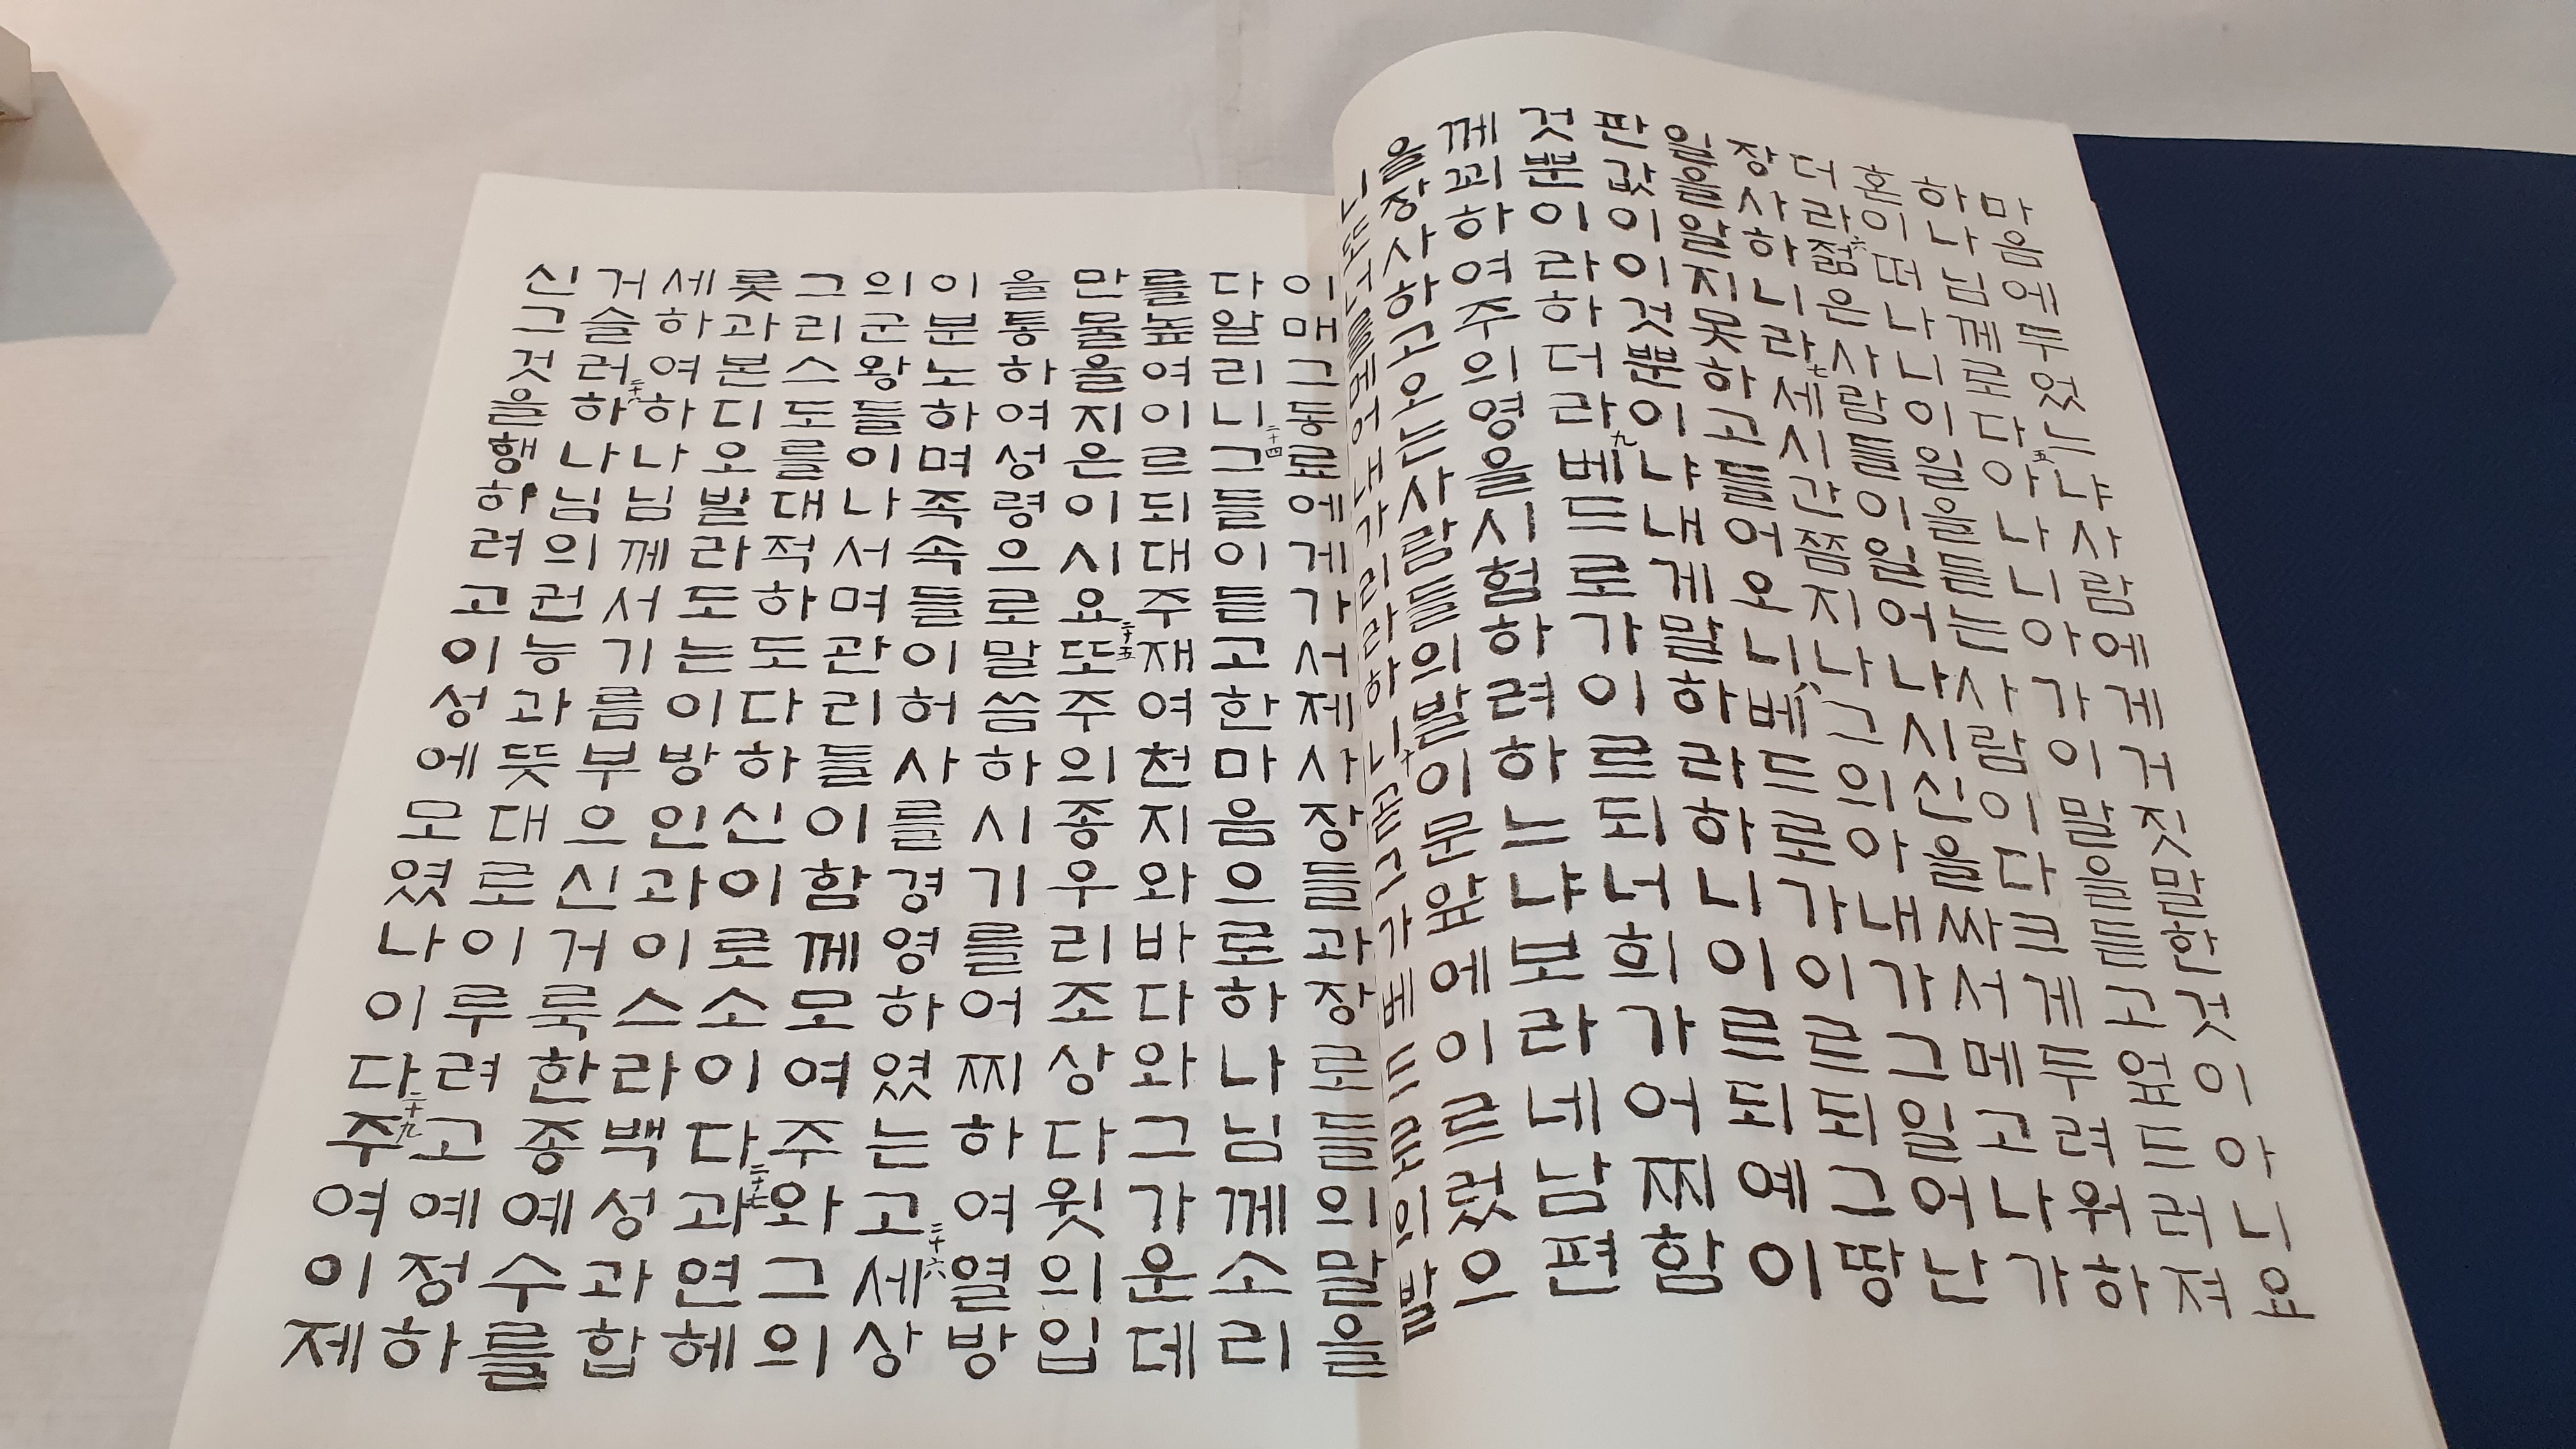 마음에두었느냐사람에게거짓말한것이아니요
하나님께로다五아나니아가이말을듣고엎드러져
혼이떠나니이일을듣는사람이다크게두려워하
더라六젊은사람들이일어나시신을싸서메고나가
장사하니라七세시간쯤지나그의아내가그일어난
일을알지못하고들어오니八베드로가이르되그땅
판값이이것뿐이냐내게말하라하니이르되예이
것뿐이라하더라九베드로가이르되너희가어찌함
께꾀하여주의영을시험하려하느냐보라네남편
을장사하고오는사람들의발이문앞에이르렀으
니또너를메어내가리라하니十곧그가베드로의발
이매그동료에게가서제사장들과장로들의말을
다알리니二十四그들이듣고한마음으로하나님께소리
를높여이르되대주재여천지와바다와그가운데
만물을지은이시요二十五또주의종우리조상다윗의입
을통하여성령으로말씀하시기를어찌하여열방
이분노하며족속들이허사를경영하였는고二十六세상
의군왕들이나서며관리들이함께모여주와그의
그리스도를대적하도다하신이로소이다二十七과연헤
롯과본디오빌라도는이방인과이스라백성과합
세하여하나님께서기름부으신거룩한종예수를
거슬러二十八하나님의권능과뜻대로이루려고예정하
신그것을행하려고이성에모였나이다二十九주여이제